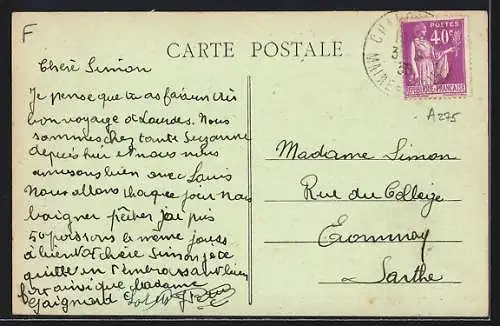 F
CARTE POSTALE
POSTES
40c
A275
Chère Simon
Je pense que tu as fais un très
bon voyage a Lourdes. Nous
sommes chez tante Suzanne
depuis hier et nous nous
amusons bien avec Louis
Nous allons chaque jour nous
baigner pêcher j'ai pris
50 poissons le même jours
à bientot chère Simon je te
quitte en t'embrassant bien
fort ainsi que Madame
Gaignard
Madame Simon
Rue du Collège
Ecommoy
Sarthe